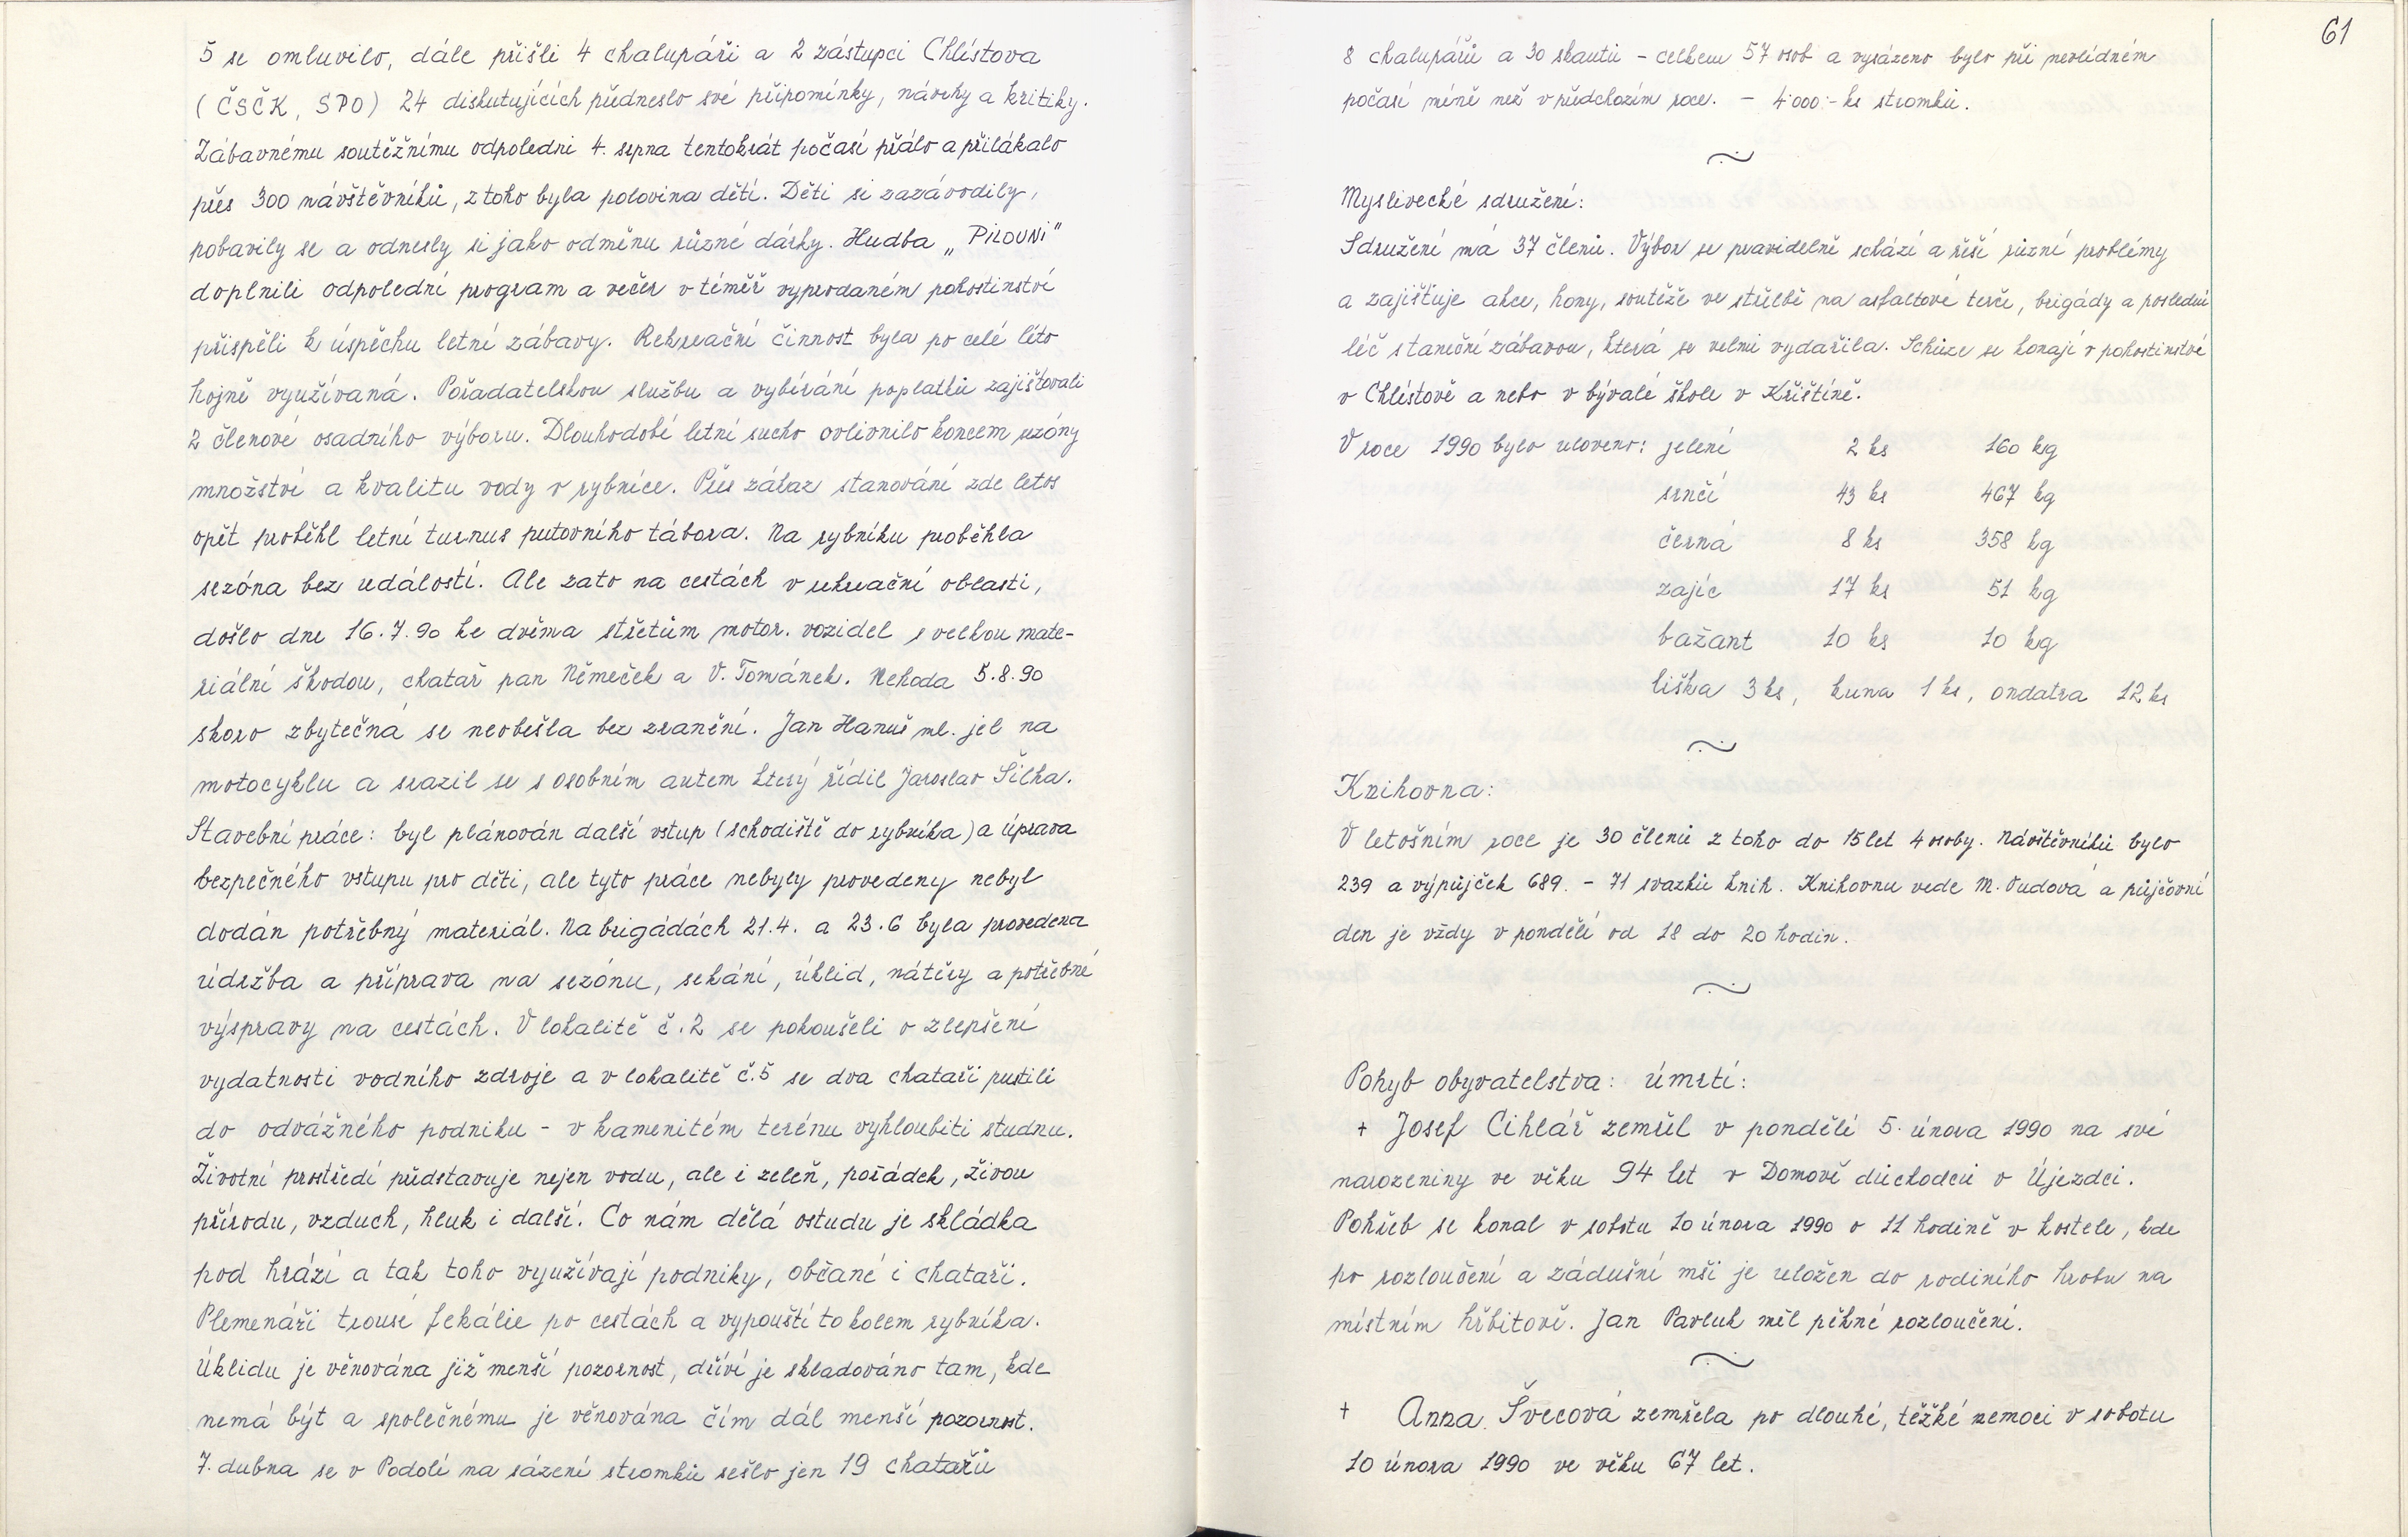 5 se omluvilo, dále přišli 4 chalupáři a 2 zástupci Chlístova
(ČSČK, SPO) 24 diskutujících předneslo své připomínky, návrhy a kritiky.
Zábavnému soutěžnímu odpoledni 4. srpna tentokrát počasí přálo a přilákalo
přes 300 návštěvníků, z toho byla polovina dětí. Děti si zazávodily,
pobavily se a odnesly si jako odměnu různé dárky. Hudba „PILOUNI"
doplnili odpolední program a večer v téměř vyprodaném pohostinství
přispěli k úspěchu letní zábavy. Rekreační činnost byla po celé léto
hojně využívaná. Pořadatelskou službu a vybírání poplatků zajišťovali
2 členové osadního výboru. Dlouhodobé letní sucho ovlivnilo koncem sezóny
množství a kvalitu vody v rybníce. Přes zákaz stanování zde letos
opět proběhl letní turnus putovního tábora. Na rybníku proběhla
sezóna bez událostí. Ale zato na cestách v rekreační oblasti,
došlo dne 16.7.90 ke dvěma střetům motor. vozidel s velkou mate-
riální škodou, chatař pan Němeček a V. Tománek. Nehoda 5.8.90
skoro zbytečná se neobešla bez zranění. Jan Hanuš ml. jel na
motocyklu a srazil se s osobním autem který řídil Jaroslav Šilha.
Stavební práce: byl plánován další vstup (schodiště do rybníka) a úprava
bezpečného vstupu pro děti, ale tyto práce nebyly provedeny nebyl
dodán potřebný materiál. Na brigádách 21.4. a 23.6 byla provedena
údržba a příprava na sezónu, sekání, úklid, nátěry a potřebné
výspravy na cestách. V lokalitě č.2 se pokoušeli o zlepšení
vydatnosti vodního zdroje a v lokalitě č.5 se dva chataři pustili
do odvážného podniku - v kamenitém terénu vyhloubiti studnu.
Životní prostředí představuje nejen vodu, ale i zeleň, pořádek, živou
přírodu, vzduch, hluk i další. Co nám dělá ostudu je skládka
pod hrází a tak toho využívají podniky, občané i chataři.
Plemenáři trousí fekálie po cestách a vypouští to kolem rybníka.
Úklidu je věnována již menší pozornost, dříví je skladováno tam, kde
nemá být a společnému je věnována čím dál menší pozornost.
7. dubna se v Podolí na sázení stromků sešlo jen 19 chatařů
61
8 chalupářů a 30 skautů - celkem 57 osob a vysázeno bylo při nevlídném
počasí méně než v předchozím roce. - 4'000:- ks stromků.
Myslivecké sdružení:
Sdružení má 37 členů. Výbor se pravidelně schází a řeší různé problémy
a zajišťuje akce, hony, soutěže ve střelbě na asfaltové terče, brigády a poslední
léč s taneční zábavou, která se velmi vydařila. Schůze se konají v pohostinství
v Chlístově a nebo v bývalé škole v Křištíně.
V roce 1990 bylo uloveno: jelení 2 ks 160 kg
srnčí 43 ks 467 kg
černá 8 ks 358 kg
zajíc 17 ks 51 kg
bažant 10 ks 10 kg
liška 3 ks, kuna 1 ks, ondatra 12 ks
Knihovna:
V letošním roce je 30 členů z toho do 15 let 4 osoby. Návštěvníků bylo
239 a výpůjček 689. - 71 svazků knih. Knihovnu vede M. Vudová a půjčovní
den je vždy v pondělí od 18 do 20 hodin.
Pohyb obyvatelstva: úmrtí:
+ Josef Cihlář zemřel v pondělí 5. února 1990 na své
narozeniny ve věku 94 let v Domově důchodců v Újezdci.
Pohřeb se konal v sobotu 10 února 1990 o 11 hodině v kostele, kde
po rozloučení a zádušní mši je uložen do rodiního hrobu na
místním hřbitově. Jan Pavluk měl pěkné rozloučení.
+ Anna Švecová zemřela po dlouhé, těžké nemoci v sobotu
10 února 1990 ve věku 67 let.